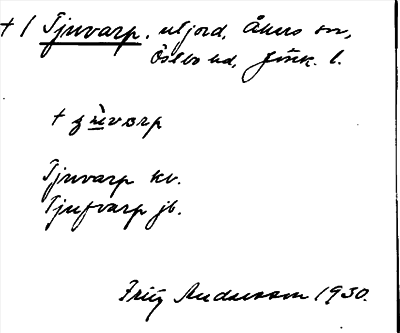 + / Tjuvarp, utjord, Åkers sn,
Östbo hd, Jönk. l.
Tjuvarp kv.
Tjufvarp jb.
Fritz Andersson 1930.